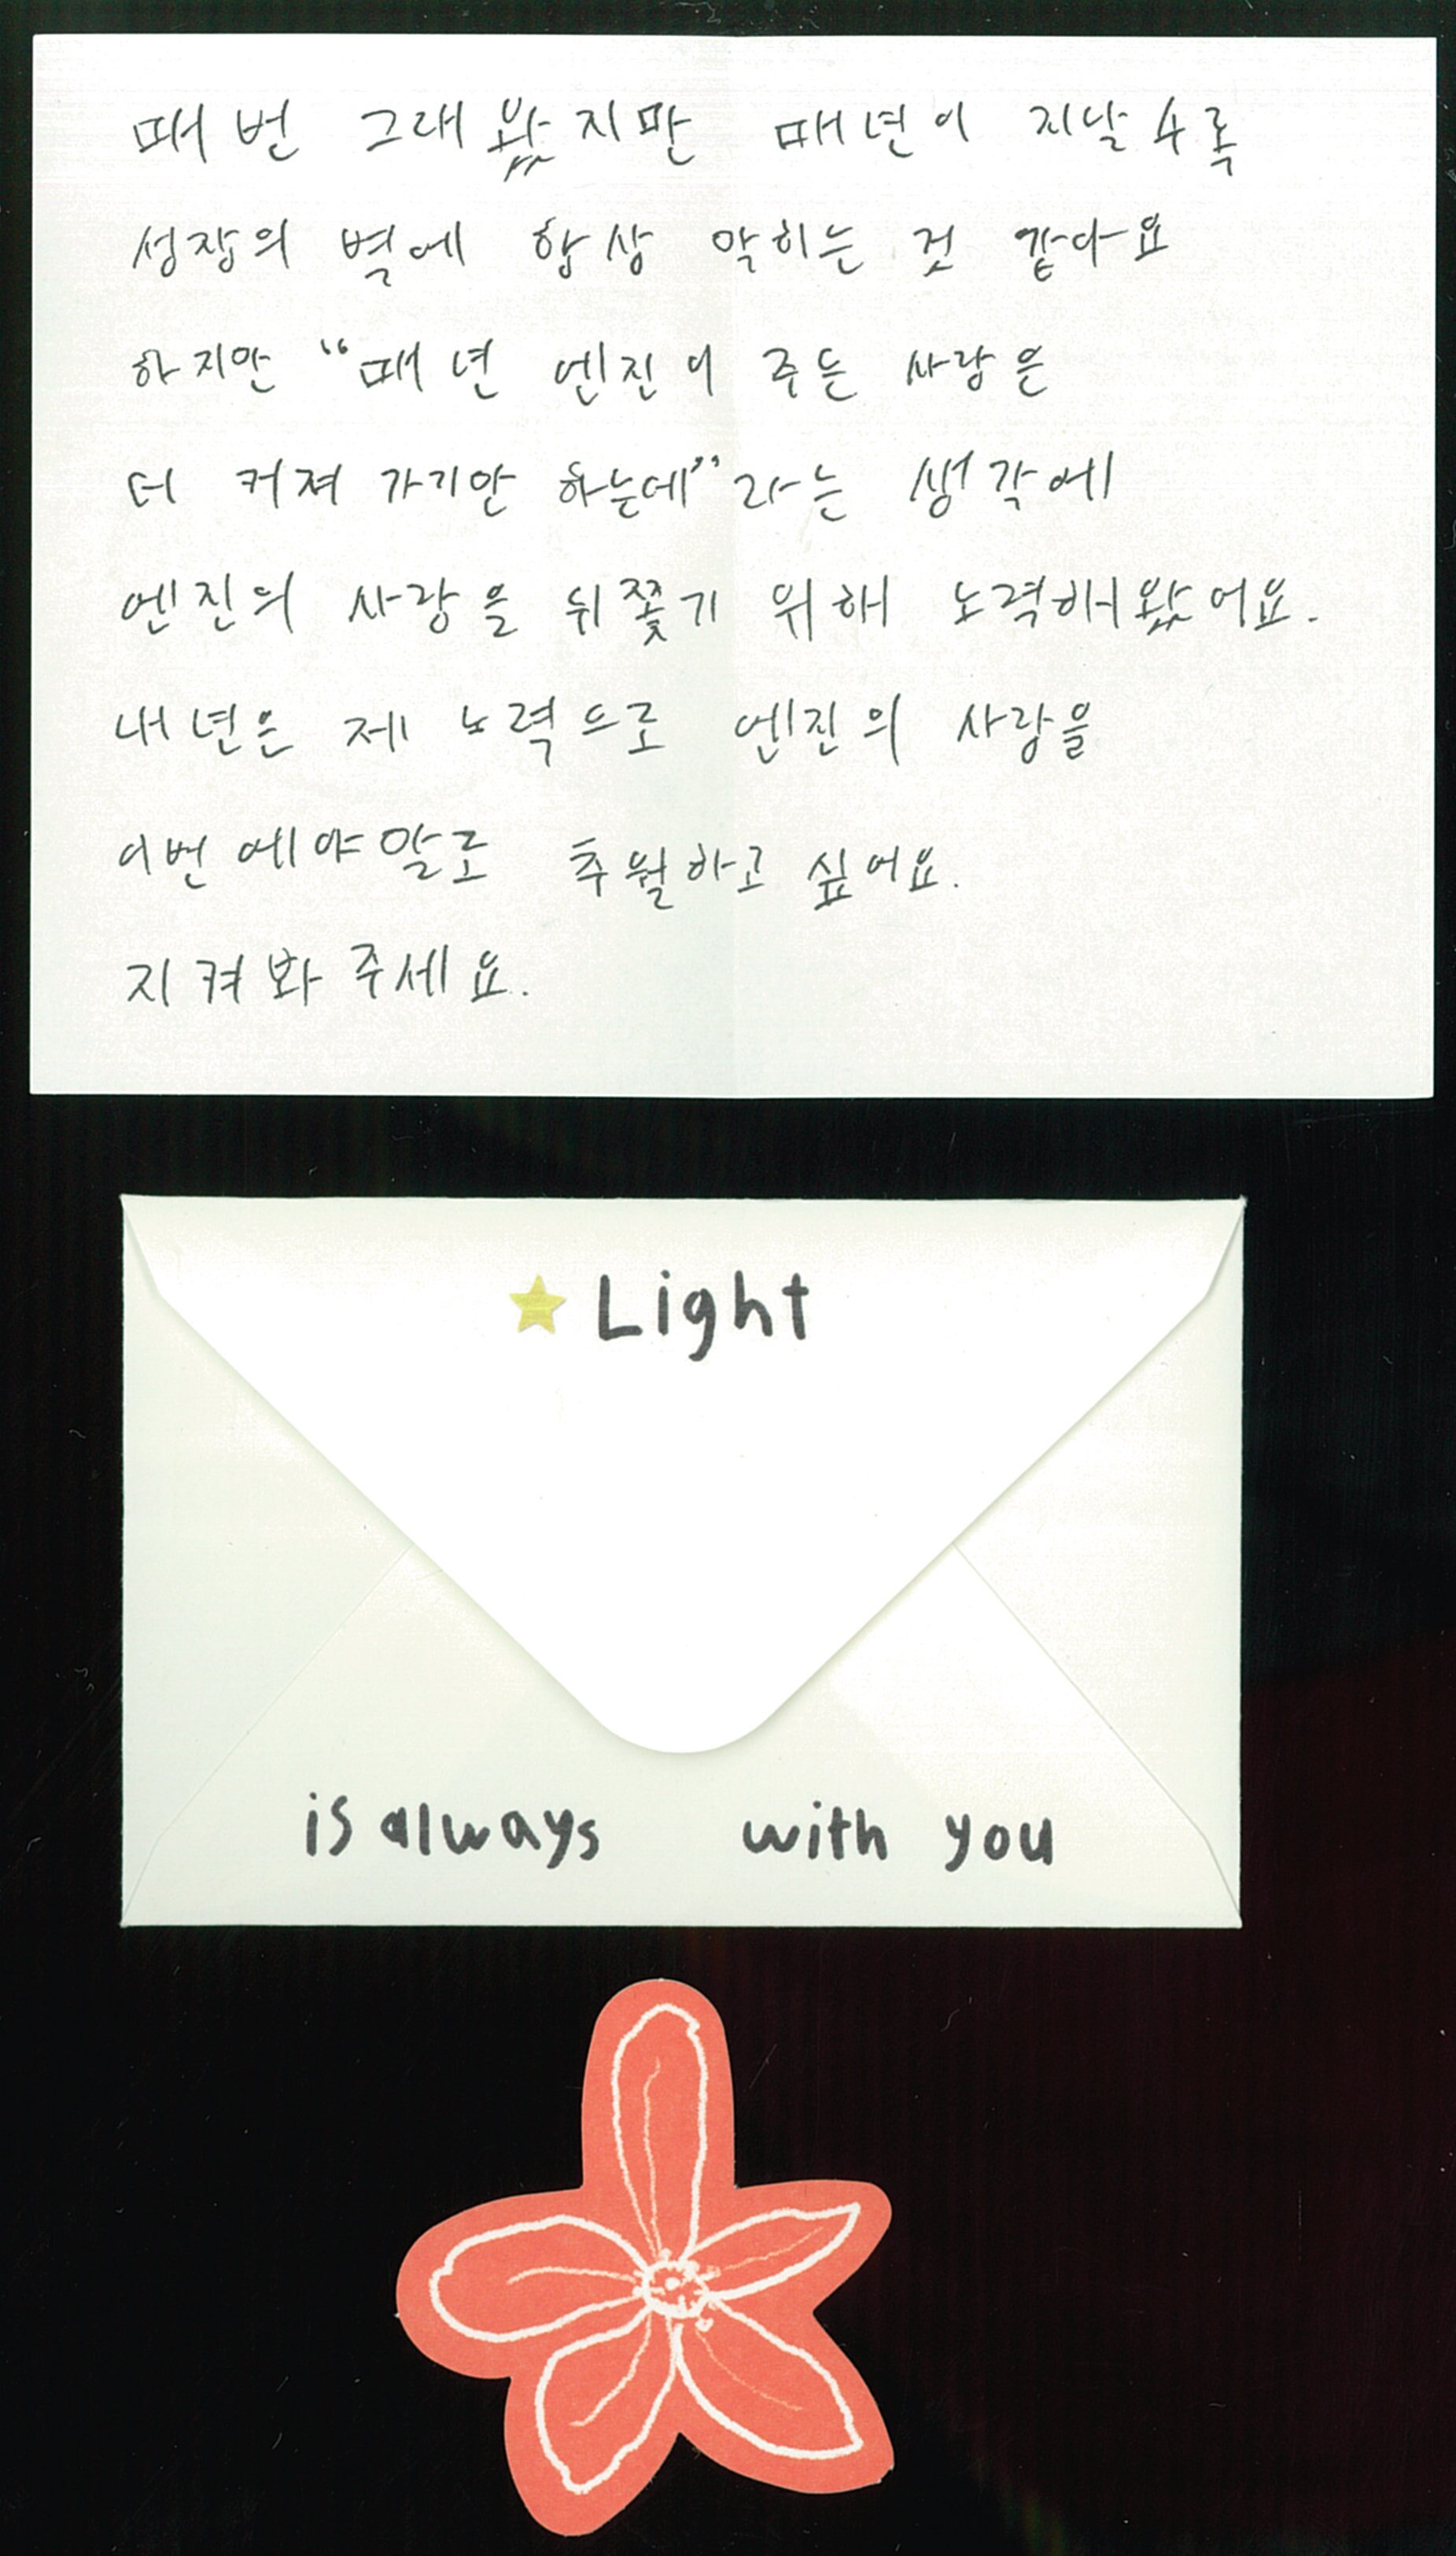 매번 그래왔지만 매년이 지날수록
성장의 벽에 항상 막히는 것 같아요
하지만 “매년 엔진이 주는 사랑은
더 커져 가기만 하는데”라는 생각에
엔진의 사랑을 뒤쫓기 위해 노력해왔어요.
내년은 제 노력으로 엔진의 사랑을
이번에야말로 추월하고 싶어요.
지켜봐 주세요.
Light
is always with you